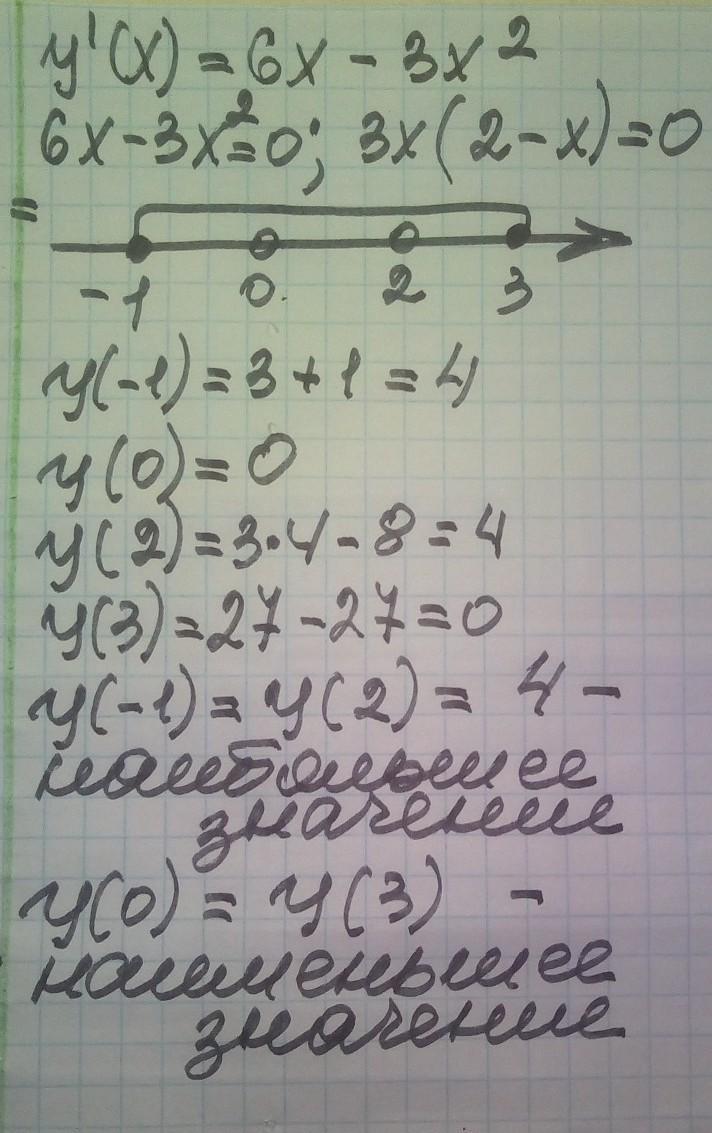 y'(x) = 6x - 3x²
6x-3x²=0; 3x(2-x)=0
=
-1 0. 2 3
y(-1) = 3 + 1 = 4
y(0) = 0
y(2) = 3·4 - 8 = 4
y(3) = 27 - 27 = 0
y(-1) = y(2) = 4 -
наибольшее
значение
y(0) = y(3) -
наименьшее
значение